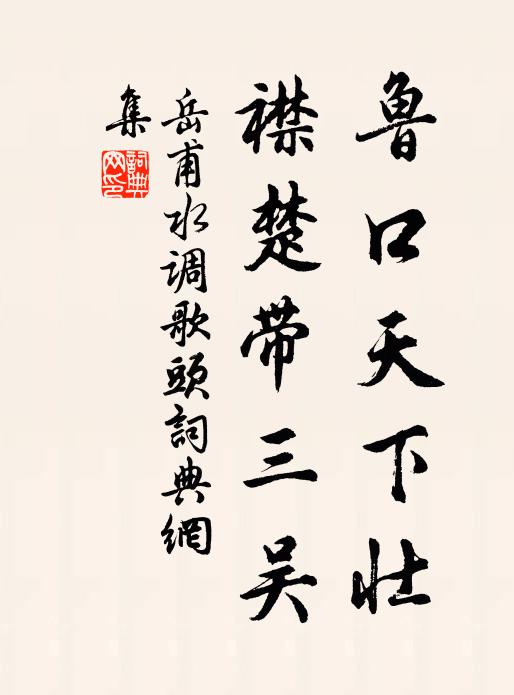 鲁口天下壮
襟楚带三吴
岳甫水调歌頭詞典網
集
詞典網印